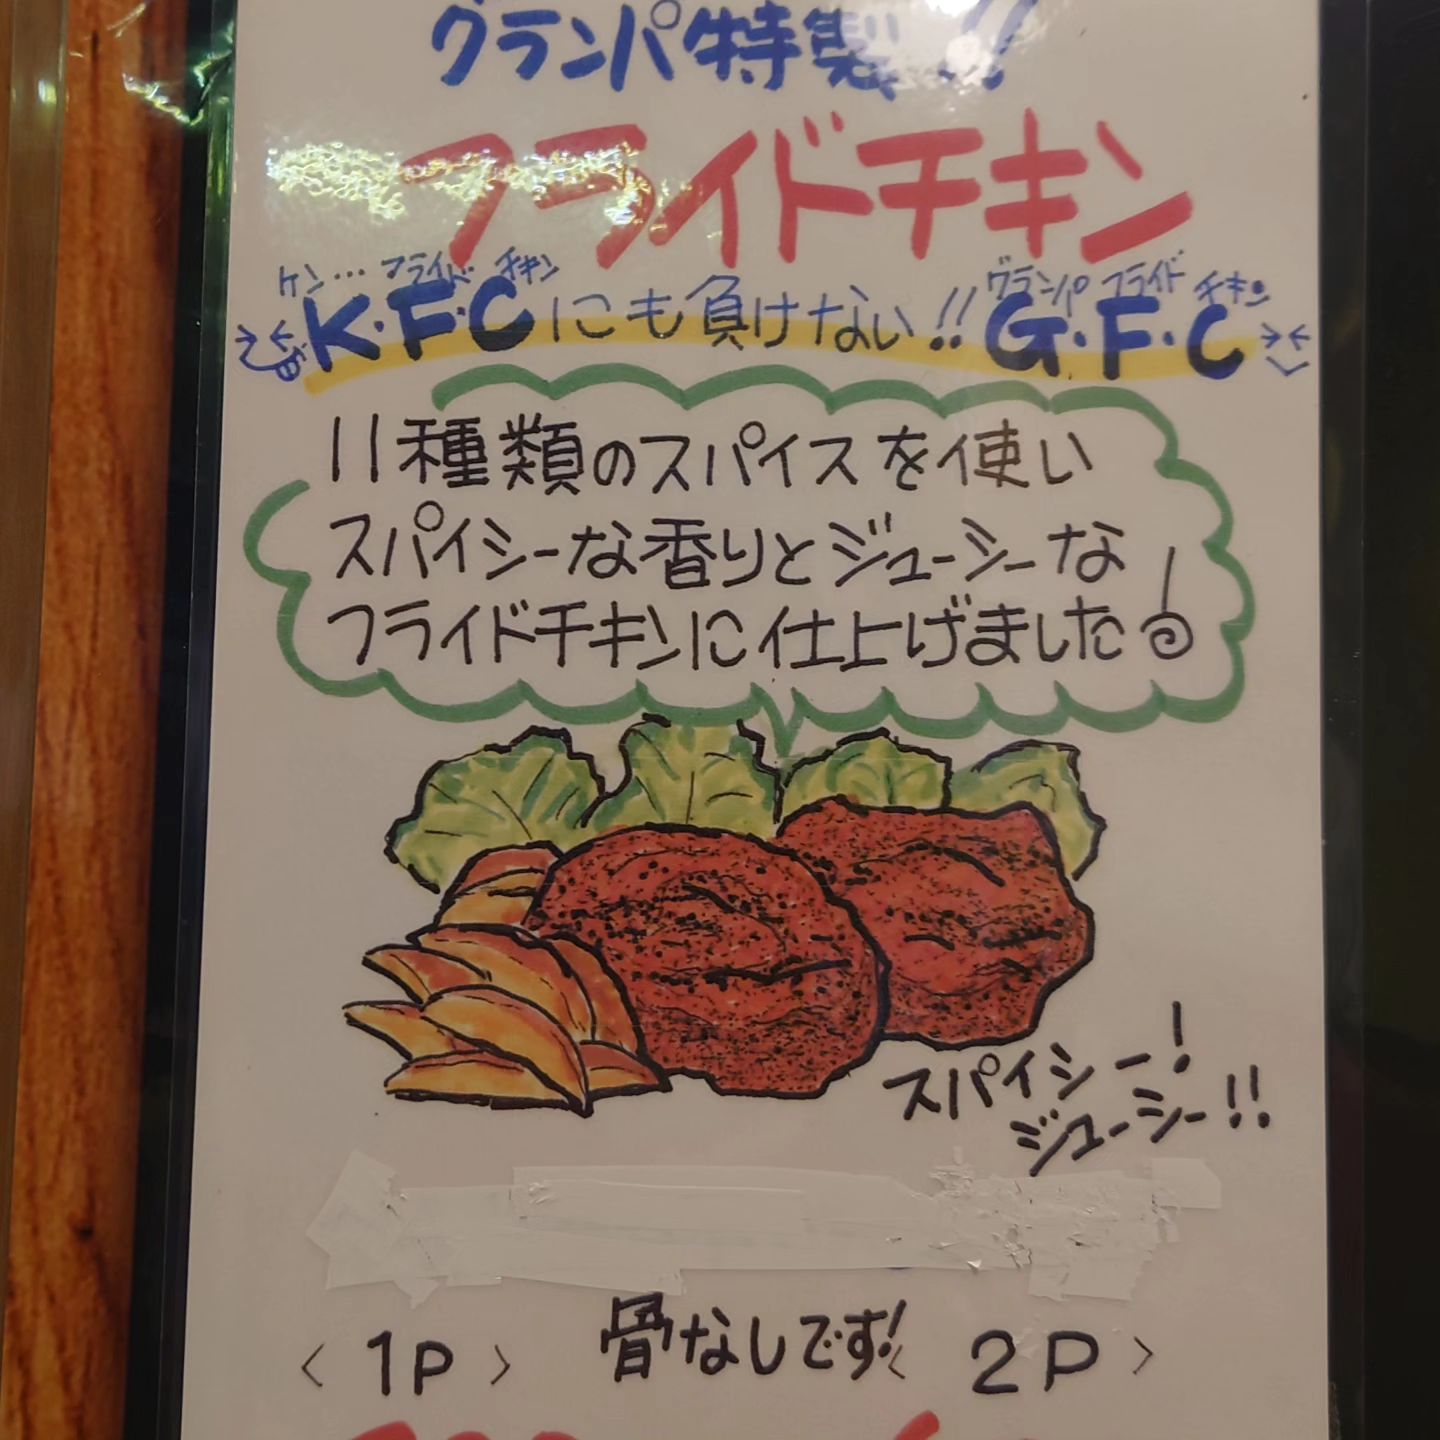 グランパ特製!!
フライドチキン
ケン… フライド チキン
グランパ フライド チキン
K・F・Cにも負けない!! G・F・C
11種類のスパイスを使い
スパイシーな香りとジューシーな
フライドチキンに仕上げました
スパイシー!
ジューシー!!
骨なしです!
〈 1P 〉 〈 2P 〉